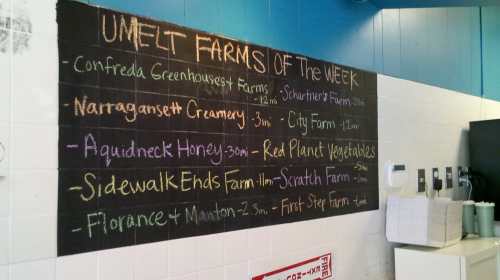 UMELT FARMS OF THE WEEK
- Confreda Greenhouses + Farms
-12mi
- Schartner's Farm
- Narragansett Creamery -3mi
- City Farm
- Aquidneck Honey -30mi
- Red Planet Vegetables
- Sidewalk Ends Farm -1mi
- Scratch Farm
- Florance + Manton -2.5mi
- First Step Farm
FIRE
EXIT